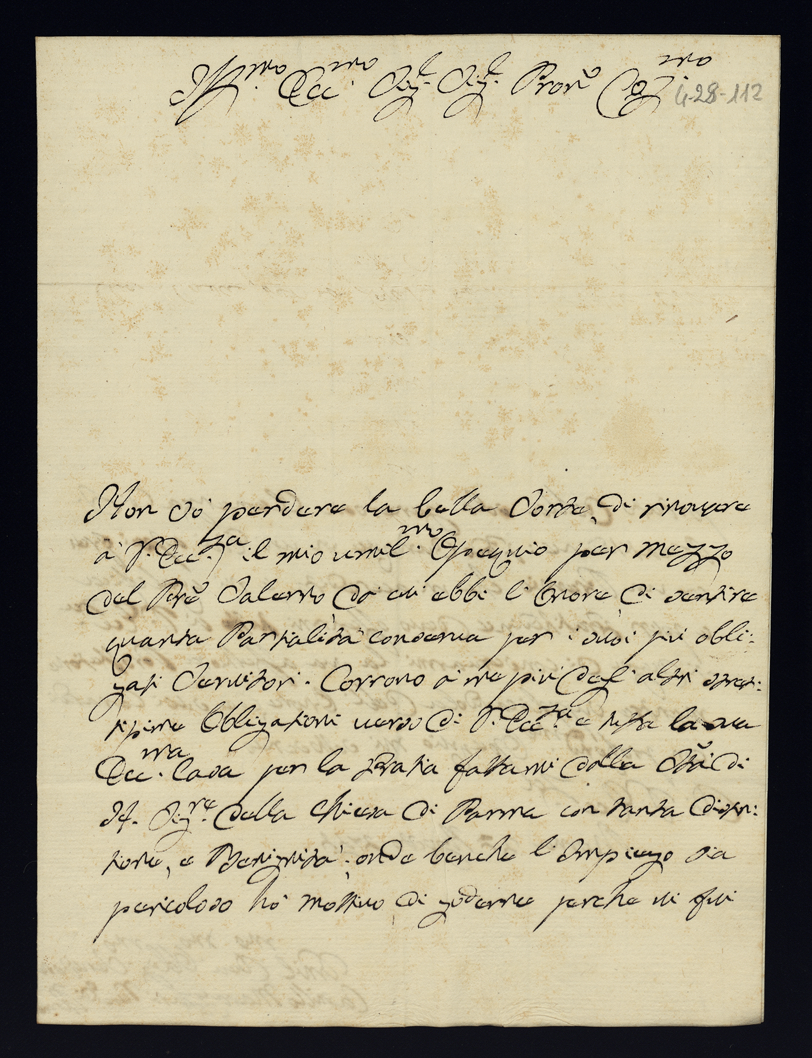 Ill.mo Ecc.mo Sig.r Sig.r Pron.e Col.mo
4-28-112
Non vò perdere la bella sorte di rinovare
à V. Ecc.za il mio umil.mo Ossequio per mezzo
del Pre Salerno da cui ebbi l'onore di sentire
quanta Parzialità conserva per i suoi più obli:
gati Servitori. Corrono à me più degl'altri stret:
tissime Obligazioni verso di V. Ecc.za e tutta la sua
Ecc.ma Casa per la Grazia fattami dalla Stà di
N. Sig.re della Chiesa di Parma con tanta distin:
zione, e Benignità; onde benche l'Impiego sia
pericoloso hò motivo di goderne perche vi fui